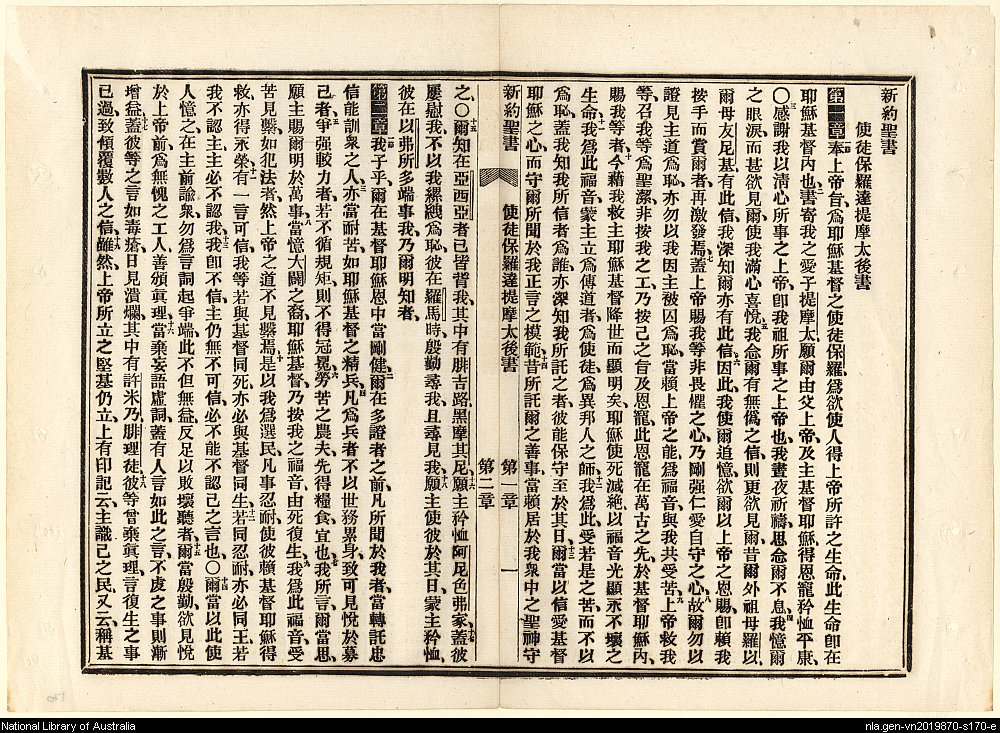 新約聖書
使徒保羅達提摩太後書
第一章一節奉上帝旨、爲耶穌基督之使徒保羅、爲欲使人得上帝所許之生命、此生命卽在
耶穌基督內也、二書寄我之愛子提摩太、願爾由父上帝、及主基督耶穌得恩寵矜恤平康、
〇三感謝我以淸心所事之上帝、卽我祖所事之上帝也、我晝夜祈禱、思念爾不息、四我憶爾
之眼淚、而甚欲見爾、使我滿心喜悅、五我念爾有無僞之信、則更欲見爾、昔爾外祖母羅以、
爾母友尼基、有此信、我深知爾亦有此信、六因此我使爾追憶、欲爾以上帝之恩賜、卽賴我
按手而賞爾者、再激發焉、七蓋上帝賜我等非畏懼之心、乃剛强仁愛自守之心、八故爾勿以
證見主道爲恥、亦勿以我因主被囚爲恥、當賴上帝之能、爲福音與我共受苦、九上帝救我
等、召我等爲聖潔、非按我之工、乃按己之旨及恩寵、此恩寵在萬古之先、於基督耶穌內、
賜我等者、十今藉我救主耶穌基督降世而顯明矣、耶穌使死滅絕、以福音光顯永不壞之
生命、十一我爲此福音、蒙主立爲傳道者、爲使徒、爲異邦人之師、十二我爲此受若是之苦、而不以
爲恥、蓋我知我所信者爲誰、亦深知我所託之者、彼能保守至於其日、十三爾當以信愛基督
耶穌之心、而守爾所聞於我正言之模範、十四昔所託爾之善事、當賴居於我衆中之聖神守
新約聖書 使徒保羅達提摩太後書 第一章 一
第二章
之、〇十五爾知在亞西亞者已皆背我、其中有腓吉路黑摩其尼、十六願主矜恤阿尼色弗家、蓋彼
屢慰我、不以我縲絏爲恥、十七彼在羅馬時、殷勤尋我、且尋見我、十八願主使彼於其日、蒙主矜恤、
彼在以弗所多端事我、乃爾明知者、
第二章一節我子乎、爾在基督耶穌恩中當剛健、二爾在多證者之前、凡所聞於我者、當轉託忠
信能訓衆之人、三亦當耐苦、如耶穌基督之精兵、四凡爲兵者、不以世務累身、致可見悅於募
己者、五爭强較力者、若不循規矩、則不得冠冕、六勞苦之農夫、先得糧食、宜也、七我所言、爾當思、
願主賜爾明於萬事、八當憶大闢之裔耶穌基督、乃按我之福音、由死復生、九我爲此福音、受
苦見繫如犯法者、然上帝之道不見繫焉、十是以我爲選民凡事忍耐、使彼賴基督耶穌得
救、亦得永榮、十一有一言可信、我等若與基督同死、亦必與基督同生、十二若同忍耐、亦必同王、若
我不認主、主必不認我、十三我卽不信、主仍無不可信、必不能不認己之言也、〇十四爾當以此使
人憶之、在主前諭衆、勿爲言詞起爭端、此不但無益、反足以敗壞聽者、十五爾當殷勤、欲見悅
於上帝前、爲無愧之工人、善頒眞理、十六當棄妄語虛詞、蓋有人言如此之言、不虔之事則漸
增益、十七蓋彼等之言如毒瘡日見潰爛、其中有許米乃腓理徒、十八彼等曾棄眞理、言復生之事
已過、致傾覆數人之信、十九雖然、上帝所立之堅基仍立、上有印記云、主識己之民、又云、稱基
National Library of Australia
nla.gen-vn2019870-s170-e